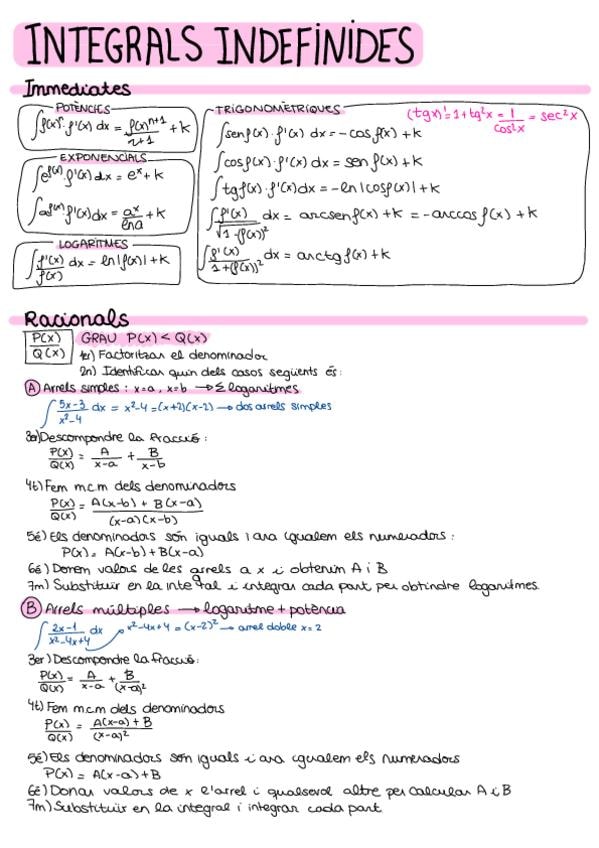 INTEGRALS INDEFINIDES
Immediates
POTÈNCIES
∫f(x)ⁿ·f'(x) dx = f(x)ⁿ⁺¹/n+1 + k
EXPONENCIALS
∫e^f(x)·f'(x) dx = eˣ + k
∫a^f(x)·f'(x) dx = aˣ/ln a + k
LOGARITMES
∫f'(x)/f(x) dx = ln|f(x)| + k
TRIGONOMÈTRIQUES
(tgx)' = 1 + tg²x = 1/cos²x = sec²x
∫sen f(x)·f'(x) dx = -cos f(x) + k
∫cos f(x)·f'(x) dx = sen f(x) + k
∫tg f(x)·f'(x) dx = -ln|cos f(x)| + k
∫f'(x)/√1-(f(x))² dx = arcsen f(x) + k = -arccos f(x) + k
∫f'(x)/1+(f(x))² dx = arctg f(x) + k
Racionals
P(x)/Q(x) GRAU P(x) < Q(x)
1er) Factoritzar el denominador
2n) Identificar quin dels casos següents és:
A Arrels simples: x=a, x=b → Σ logaritmes
∫5x-3/x²-4 dx = x²-4 = (x+2)(x-2) → dos arrels simples
3er) Descompondre la fracció:
P(x)/Q(x) = A/x-a + B/x-b
4t) Fem m.c.m dels denominadors
P(x)/Q(x) = A(x-b) + B(x-a)/(x-a)(x-b)
5é) Els denominadors són iguals i ara igualem els numeradors:
P(x) = A(x-b) + B(x-a)
6é) Donem valors de les arrels a x i obtenim A i B
7m) Substituir en la integral i integrar cada part per obtindre logaritmes.
B Arrels múltiples → logaritme + potència
∫2x-1/x²-4x+4 dx → x²-4x+4 = (x-2)² → arrel doble x=2
3er) Descompondre la fracció:
P(x)/Q(x) = A/x-a + B/(x-a)²
4t) Fem m.c.m dels denominadors
P(x)/Q(x) = A(x-a) + B/(x-a)²
5é) Els denominadors són iguals i ara igualem els numeradors
P(x) = A(x-a) + B
6é) Donar valors de x l'arrel i qualsevol altre per calcular A i B
7m) Substituir en la integral i integrar cada part